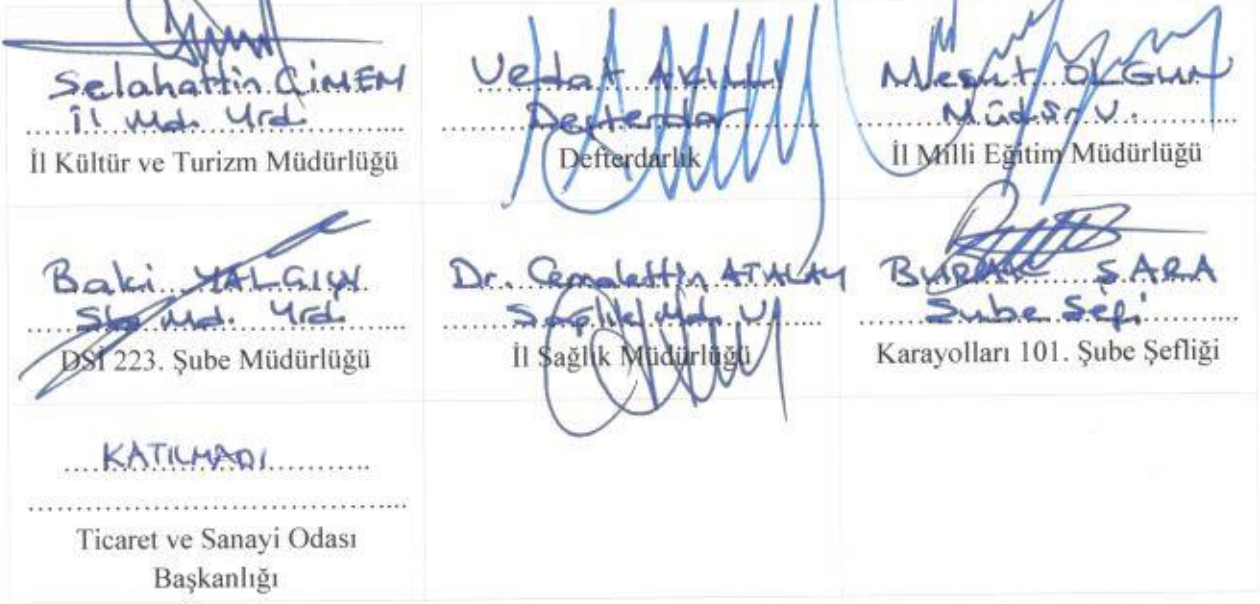 Selahattin ÇİMEN
İl Md. Yrd.
İl Kültür ve Turizm Müdürlüğü
Vedat AKILLI
Defterdar
Defterdarlık
Mesut OLGUN
Müdür V.
İl Milli Eğitim Müdürlüğü
Baki YALÇIN
Şb. Md. Yrd.
DSİ 223. Şube Müdürlüğü
Dr. Cemalettin ATALAY
Sağlık Md. V.
İl Sağlık Müdürlüğü
BURAK ŞARA
Şube Şefi
Karayolları 101. Şube Şefliği
KATILMADI
Ticaret ve Sanayi Odası
Başkanlığı